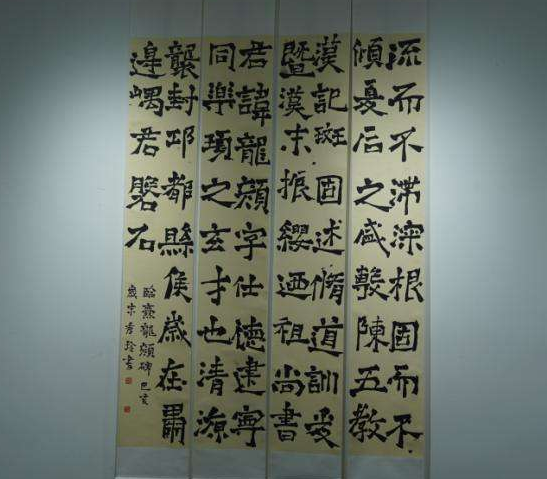 流而不滯深根固而不
傾夏后之盛敷陳五教
漢記班固述脩道訓爰
暨漢末振纓迺祖尚書
君諱龍顏字仕德建寧
同樂瑱之玄才也清源
襲封邛都縣侯歲在
邊嵎君磐石
臨爨龍顏碑己亥
歲末書